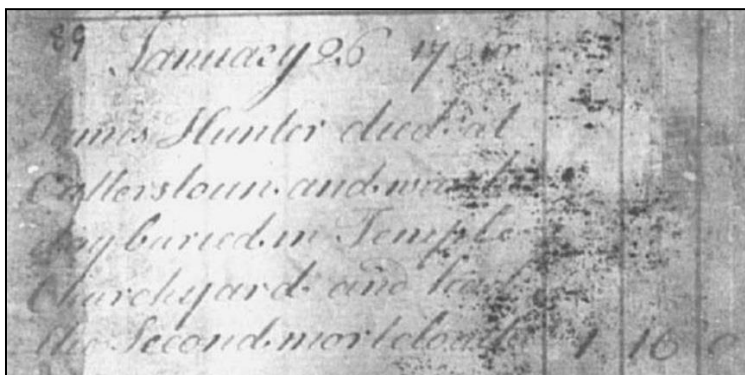 89 January 26
James Hunter died at
Collerstoun and was the
day buried in Temple
Churchyard and had
the Second mortcloath 1 16 0